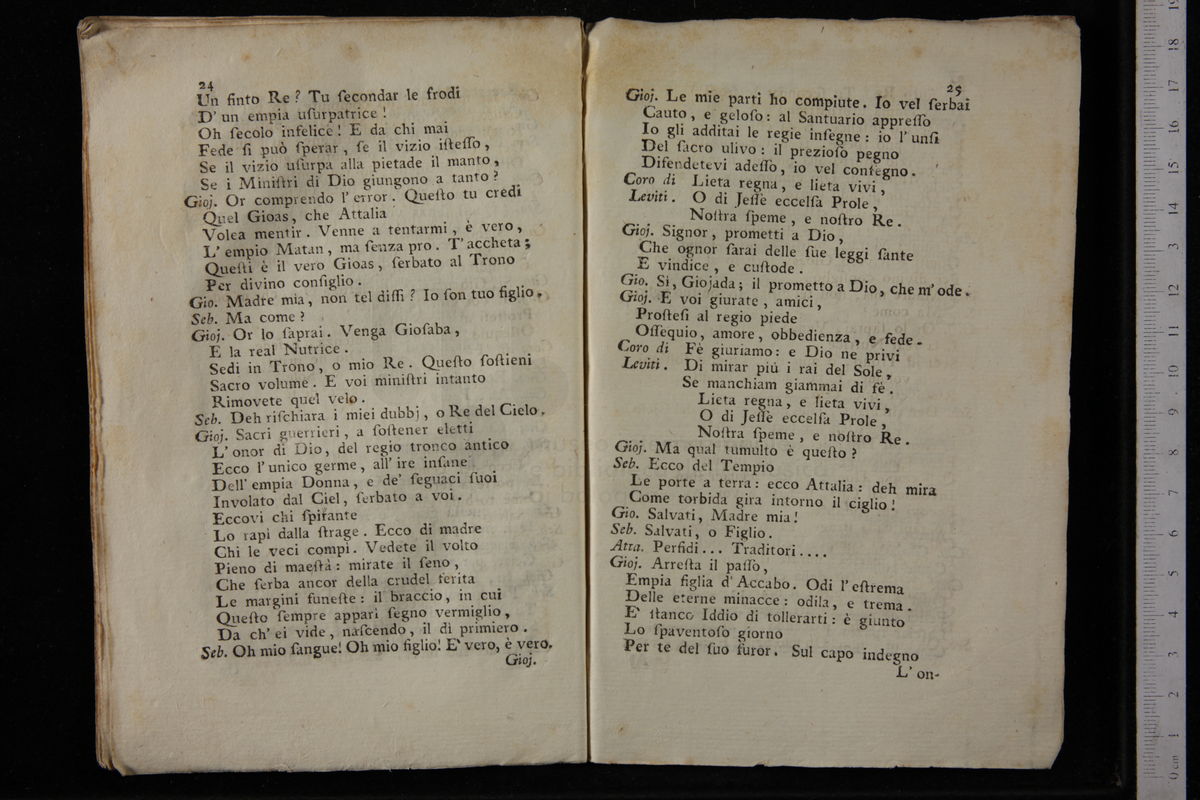 24
Un finto Re? Tu ſecondar le frodi
D' un empia uſurpatrice!
Oh ſecolo infelice! E da chi mai
Fede ſi può ſperar, ſe il vizio iſteſſo,
Se il vizio uſurpa alla pietade il manto,
Se i Miniſtri di Dio giungono a tanto?
Gioj. Or comprendo l' error. Queſto tu credi
Quel Gioas, che Attalia
Volea mentir. Venne a tentarmi, è vero,
L' empio Matan, ma ſenza pro. T' accheta;
Queſti è il vero Gioas, ſerbato al Trono
Per divino conſiglio.
Gio. Madre mia, non tel diſſi? Io ſon tuo figlio.
Seb. Ma come?
Gioj. Or lo ſaprai. Venga Gioſaba,
E la real Nutrice.
Sedi in Trono, o mio Re. Queſto ſoſtieni
Sacro volume. E voi miniſtri intanto
Rimovete quel velo.
Seb. Deh riſchiara i miei dubbj, o Re del Cielo.
Gioj. Sacri guerrieri, a ſoſtener eletti
L' onor di Dio, del regio tronco antico
Ecco l' unico germe, all' ire inſane
Dell' empia Donna, e de' ſeguaci ſuoi
Involato dal Ciel, ſerbato a voi.
Eccovi chi ſpirante
Lo rapì dalla ſtrage. Ecco di madre
Chi le veci compì. Vedete il volto
Pieno di maeſtà: mirate il ſeno,
Che ſerba ancor della crudel ferita
Le margini funeſte: il braccio, in cui
Queſto ſempre apparì ſegno vermiglio,
Da ch' ei vide, naſcendo, il dì primiero.
Seb. Oh mio ſangue! Oh mio figlio! E' vero, è vero.
Gioj.
25
Gioj. Le mie parti ho compiute. Io vel ſerbai
Cauto, e geloſo: al Santuario appreſſo
Io gli additai le regie inſegne: io l' unſi
Del ſacro ulivo: il prezioſo pegno
Difendetevi adeſſo, io vel conſegno.
Coro di Lieta regna, e lieta vivi,
Leviti. O di Jeſſè eccelſa Prole,
Noſtra ſpeme, e noſtro Re.
Gioj. Signor, prometti a Dio,
Che ognor ſarai delle ſue leggi ſante
E vindice, e cuſtode.
Gio. Sì, Giojada; il prometto a Dio, che m' ode.
Gioj. E voi giurate, amici,
Proſteſi al regio piede
Oſſequio, amore, obbedienza, e fede.
Coro di Fè giuriamo: e Dio ne privi
Leviti. Di mirar più i rai del Sole,
Se manchiam giammai di fè.
Lieta regna, e lieta vivi,
O di Jeſſè eccelſa Prole,
Noſtra ſpeme, e noſtro Re.
Gioj. Ma qual tumulto è queſto?
Seb. Ecco del Tempio
Le porte a terra: ecco Attalia: deh mira
Come torbida gira intorno il ciglio!
Gio. Salvati, Madre mia!
Seb. Salvati, o Figlio.
Atta. Perfidi... Traditori....
Gioj. Arreſta il paſſo,
Empia figlia d' Accabo. Odi l' eſtrema
Delle eterne minacce: odila, e trema.
E' ſtanco Iddio di tollerarti: è giunto
Lo ſpaventoſo giorno
Per te del ſuo furor. Sul capo indegno
L' on-
0 cm 1 2 3 4 5 6 7 8 9 10 11 12 13 14 15 16 17 18 19